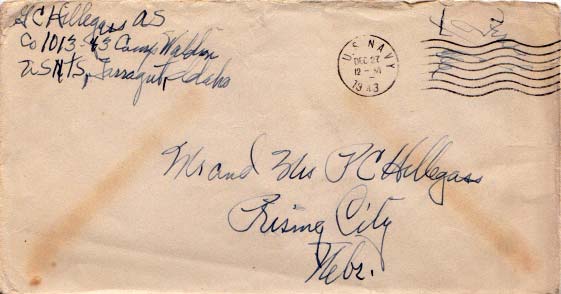 G C Hillegass AS
Co 1013-43 Camp Waldron
USNTS, Farragut, Idaho
U.S. NAVY
DEC 27
12-M
1943
Mr and Mrs F C Hillegass
Rising City
Nebr.